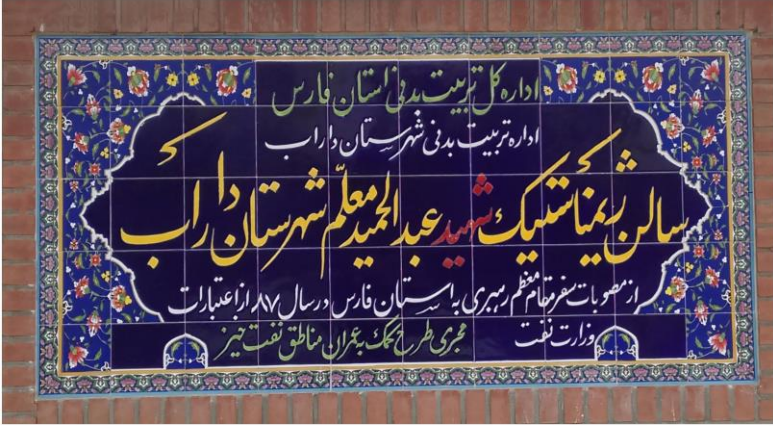 اداره کل تربیت بدنی استان فارس
اداره تربیت بدنی شهرستان داراب
سالن ژیمناستیک شهید عبدالحمید معلّم شهرستان داراب
از مصوبات سفر مقام معظم رهبری به استان فارس در سال ۸۷ از اعتبارات
وزارت نفت مجری طرح کمک به عمران مناطق نفت خیز